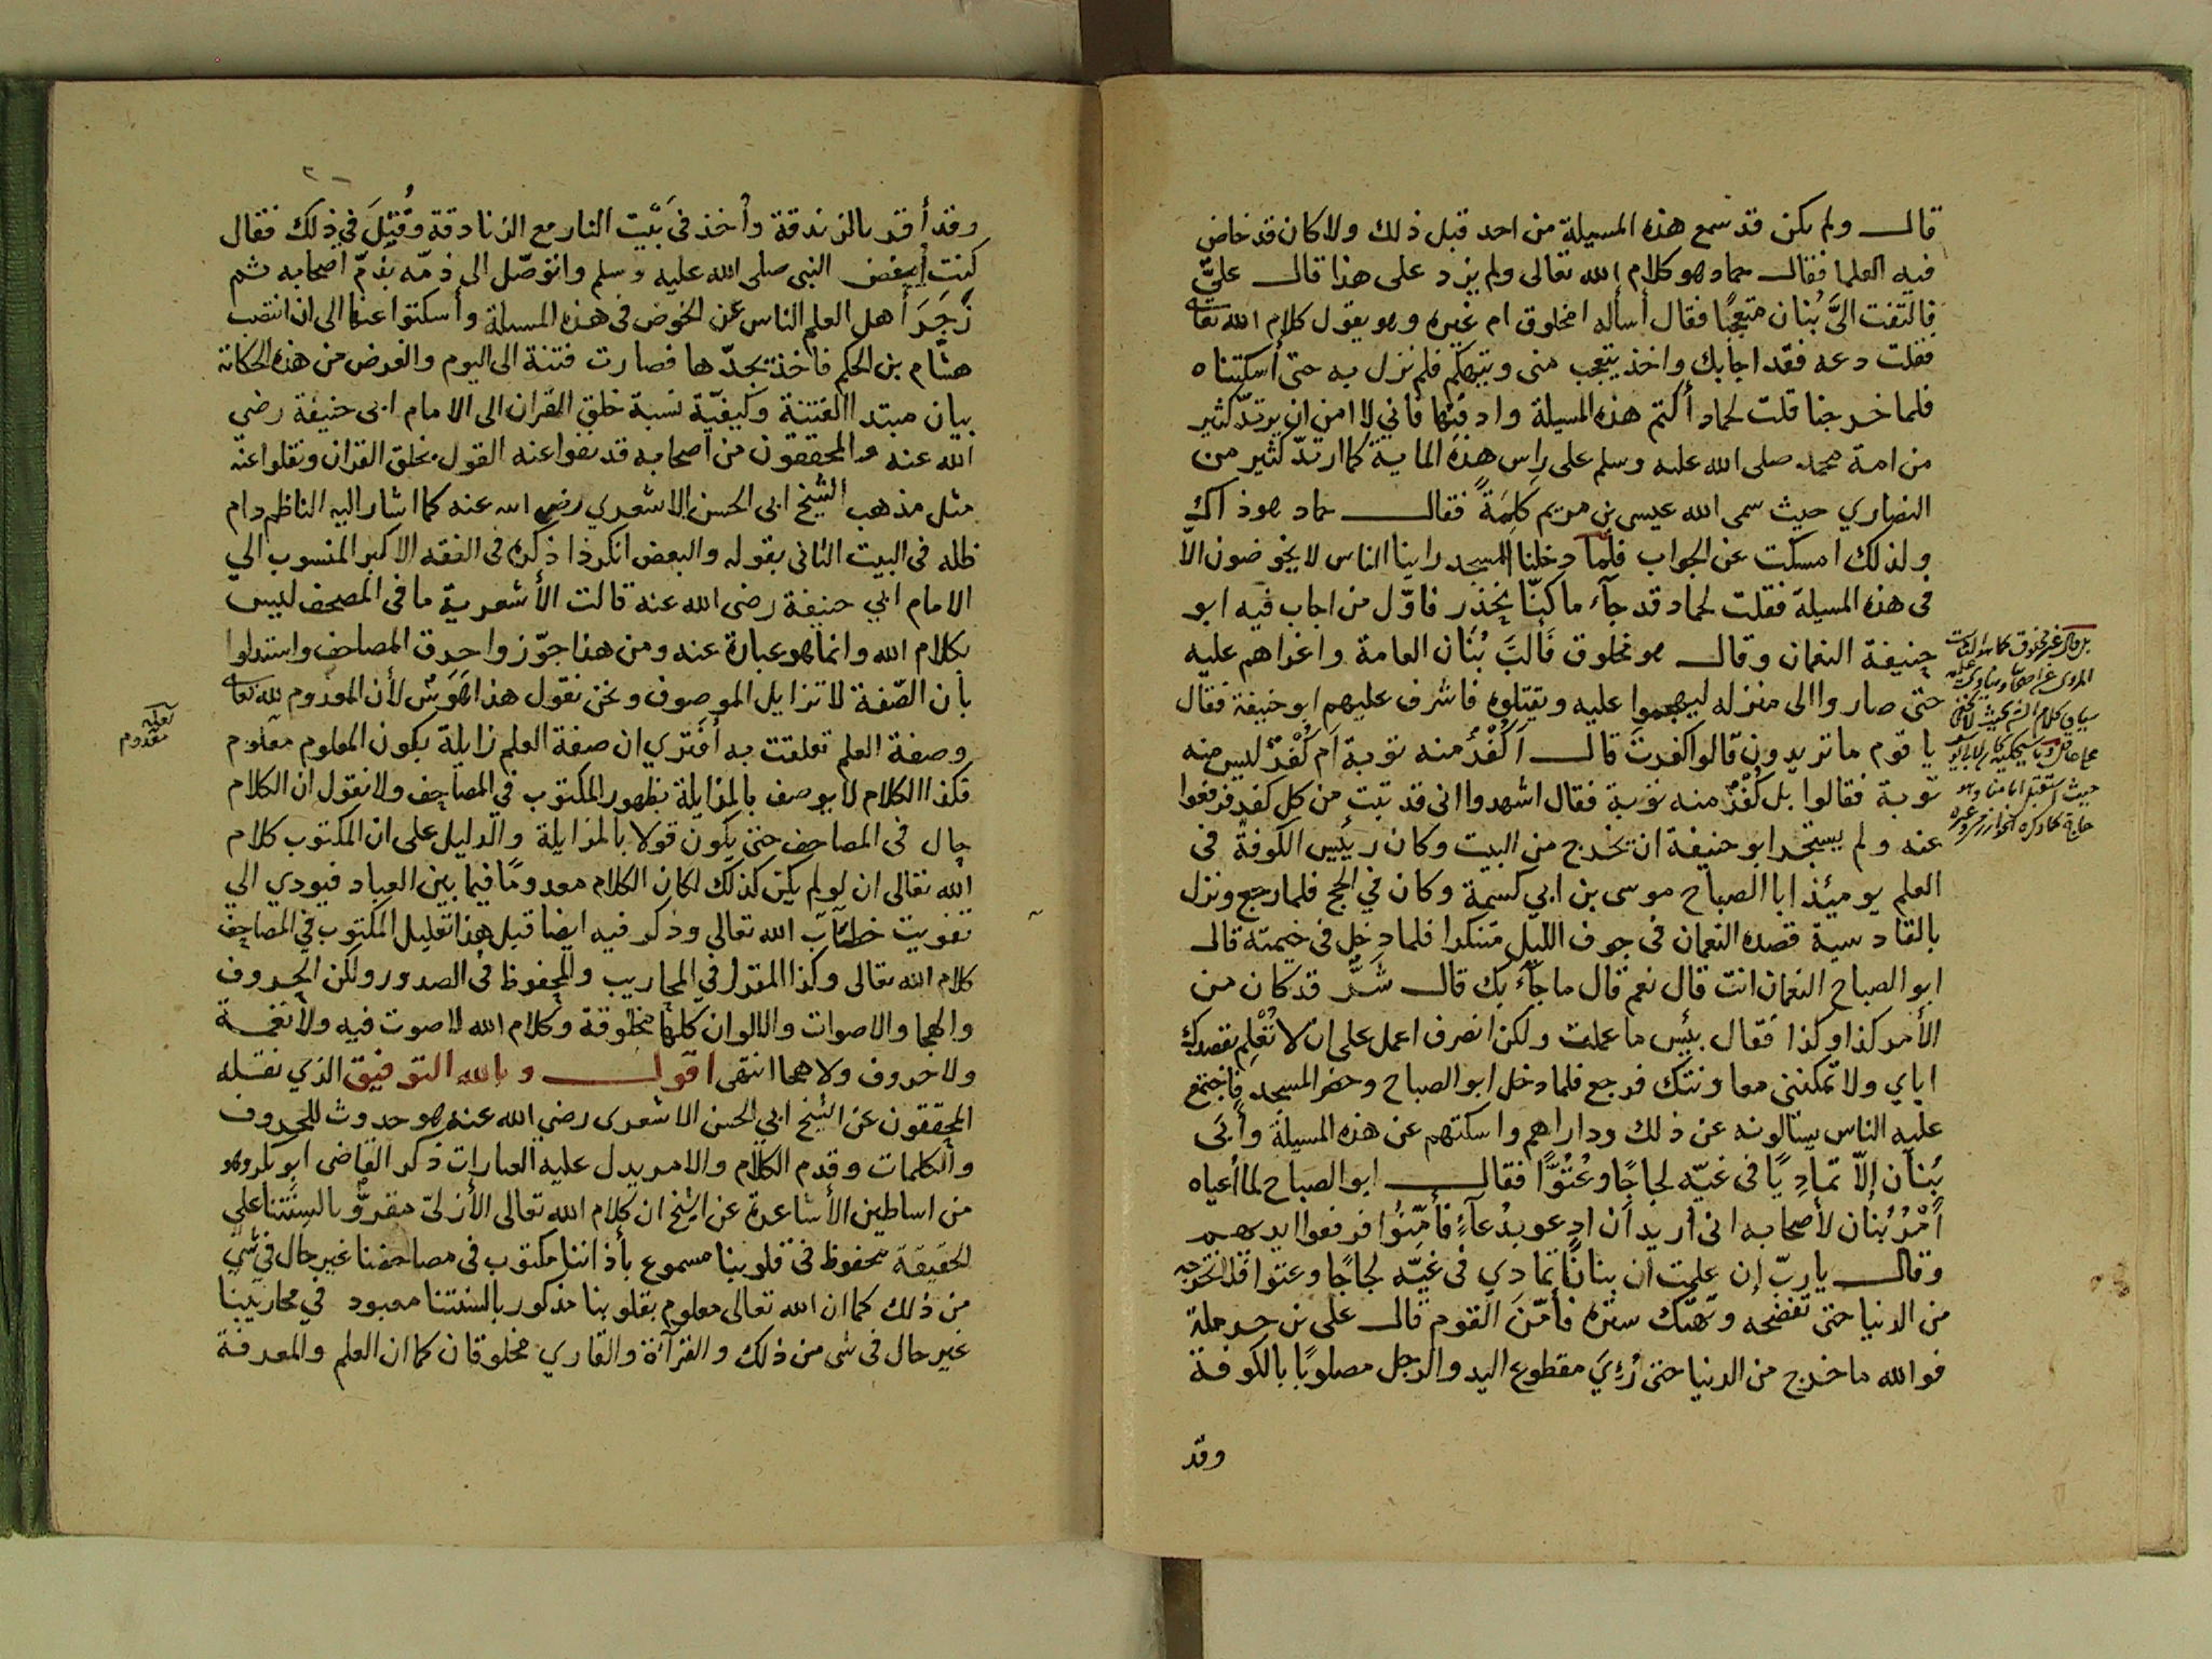 قال ولم يكن قد سمع هذه المسيلة من احد قبل ذلك ولا كان قد خاض
فيه العلما فقال حماد هو كلام الله تعالى ولم يزد على هذا قال عليّ
فالتفت اليَّ بُنان متعجّبًا فقال أساله امخلوق ام غيره وهو يقول كلام الله تعالى
فقلت دعه فقد اجابك واخذ يتعجب منى ويتهكّم فلم نزل به حتى أسكتناه
فلما خرجنا قلت لحماد أكتم هذه المسيلة وادفنها فانى لا امن ان يرتدّ كثير
من امة محمد صلى الله عليه وسلم على راس هذه الماية كما ارتدّ كثير من
النصاري حيث سمى الله عيسى بن مريم كَلِمَةً فقال حماد هو ذاك
ولذلك امسكت عن الجواب فلما دخلنا المسجد راينا الناس لا يخوضون الّا
فى هذه المسيلة فقلت لحماد قد جآء ما كنّا نحذر فاوّل من اجاب فيه ابو
حنيفة النعمان وقال هو مخلوق فَأَلَبَّ بُنَان العامة واغراهم عليه
حتى صاروا الى منزله ليهجموا عليه ويقتلوه فاشرف عليهم ابو حنيفة فقال
يا قوم ما تريدون قالوا كفرت قال أَكُفْرٌ منه توبة ام كُفْرٌ ليس منه
توبة فقالوا بل كُفْرٌ منه توبة فقال اشهدوا انى قد تبت من كل كفر فرفعوا
عنه ولم يستجز ابو حنيفة ان يخرج من البيت وكان رئيس الكوفة فى
العلم يومئذ ابا الصباح موسى بن ابي كسيمة وكان في الحج فلما رجع ونزل
بالقادسية قصده النعمان فى جوف الليل متنكرا فلما دخل فى خيمته قال
ابو الصباح النعمان انت قال نعم قال ما جآء بك قال شَرٌّ قد كان من
الأمر كذا وكذا فقال بئس ما عملت ولكن انصرف اعمل على ان لا تُعْلِم بقصدك
اياي ولا تمكننى معاونتك فرجع فلما دخل ابو الصباح وحضر المسجد فاجتمع
عليه الناس يسئالونه عن ذلك وداراهم واسكتهم عن هذه المسيلة وأَبَى
بُنَان إلّا تمادِيًا فى غيّه لجاجًا وعُتُوًّا فقال ابو الصباح لما أعياه
أَمْرُ بُنان لأصحابه انى اريد ان ادعو بدُعآءٍ فأَمِّنُوا فرفعوا ايديهم
وقال ياربّ إن علمت ان بنانًا تمادي فى غيّه لجاجًا وعتوا فلا تخرجه
من الدنيا حتى تفضحه وتهتك ستره فأمّن القوم قال على بن حرملة
فوالله ما خرج من الدنيا حتى رُئِيَ مقطوع اليد والرجل مصلوبًا بالكوفة
وقد
وقد أقر بالزندقة وأخذ فى بَيْت النار مع الزنادقة وقُتِلَ فى ذلك فقال
كنت أبغض النبى صلى الله عليه وسلم واتوصّل الى ذمّه بذمّ اصحابه ثم
زَجَرَ أهل العلم الناس عن الخوض فى هذه المسيلة وأسكتوا عنها الى ان انتصب
هشام بن الحكم فاخذ يجدّدها فصارت فتنة الى اليوم والغرض من هذه الحكاية
بيان مبتدا الفتنة وكيفيّة نسبة خلق القران الى الامام ابى حنيفة رضي
الله عنه والمحققون من اصحابه قد نفوا عنه القول بخلق القران ونقلوا عنه
مثل مذهب الشيخ ابى الحسن الاشعري رضي الله عنه كما اشار اليه الناظم دام
ظله فى البيت الثانى بقوله والبعض انكر ذا ذكره فى الفقه الاكبر المنسوب الي
الامام ابي حنيفة رضى الله عنه قالت الأشعرية ما فى المصحف ليس
بكلام الله وانما هو عبارة عنه ومن هذا جوّزوا حرق المصاحف واستدلوا
بان الصّفة لا تزايل الموصوف ونحن نقول هذا هَوَسٌ لأن المعدوم لله تعالى
وصفة العلم تعلقت به أفترى ان صفة العلم زايلة بكون المعلوم معلوم
فكذا الكلام لا يوصف بالمزايلة بظهور المكتوب في المصاحف ولا نقول ان الكلام
حال فى المصاحف حتى يكون قولا بالمزايلة والدليل على ان المكتوب كلام
الله تعالى ان لو لم يكن كذلك لكان الكلام معدومًا فيما بين العباد فيودي الي
تفويت خطاب الله تعالي وذكر فيه ايضا قبل هذا تعليل المكتوب في المصاحف
كلام الله تعالى وكذا المقرأ في المحاريب والمحفوظ فى الصدور ولكن الحروف
والهجا والاصوات والالوان كلها مخلوقة وكلام الله لا صوت فيه ولا نغمة
ولا حروف ولا هجا انتهى اقول وبالله التوفيق الذي نقله
المحققون عن الشيخ ابي الحسن الاشعرى رضي الله عنه هو حدوث للحروف
والكلمات وقدم الكلام والامر يدل عليه العبارات ذكر القاضى ابو بكر وهو
من اساطين الأشاعرة عن الشيخ ان كلام الله تعالى الأزلىّ مقروّ بالسِنَتنا على
الحقيقة محفوظ فى قلوبنا مسموع بأذاننا مكتوب فى مصاحفنا غير حال فى شي
من ذلك كما ان الله تعالى معلوم بقلوبنا مذكور بالسنتنا معبود في محاريبنا
غير حال فى شى من ذلك والقرآءة والقاري مخلوقان كما ان العلم والمعرفة